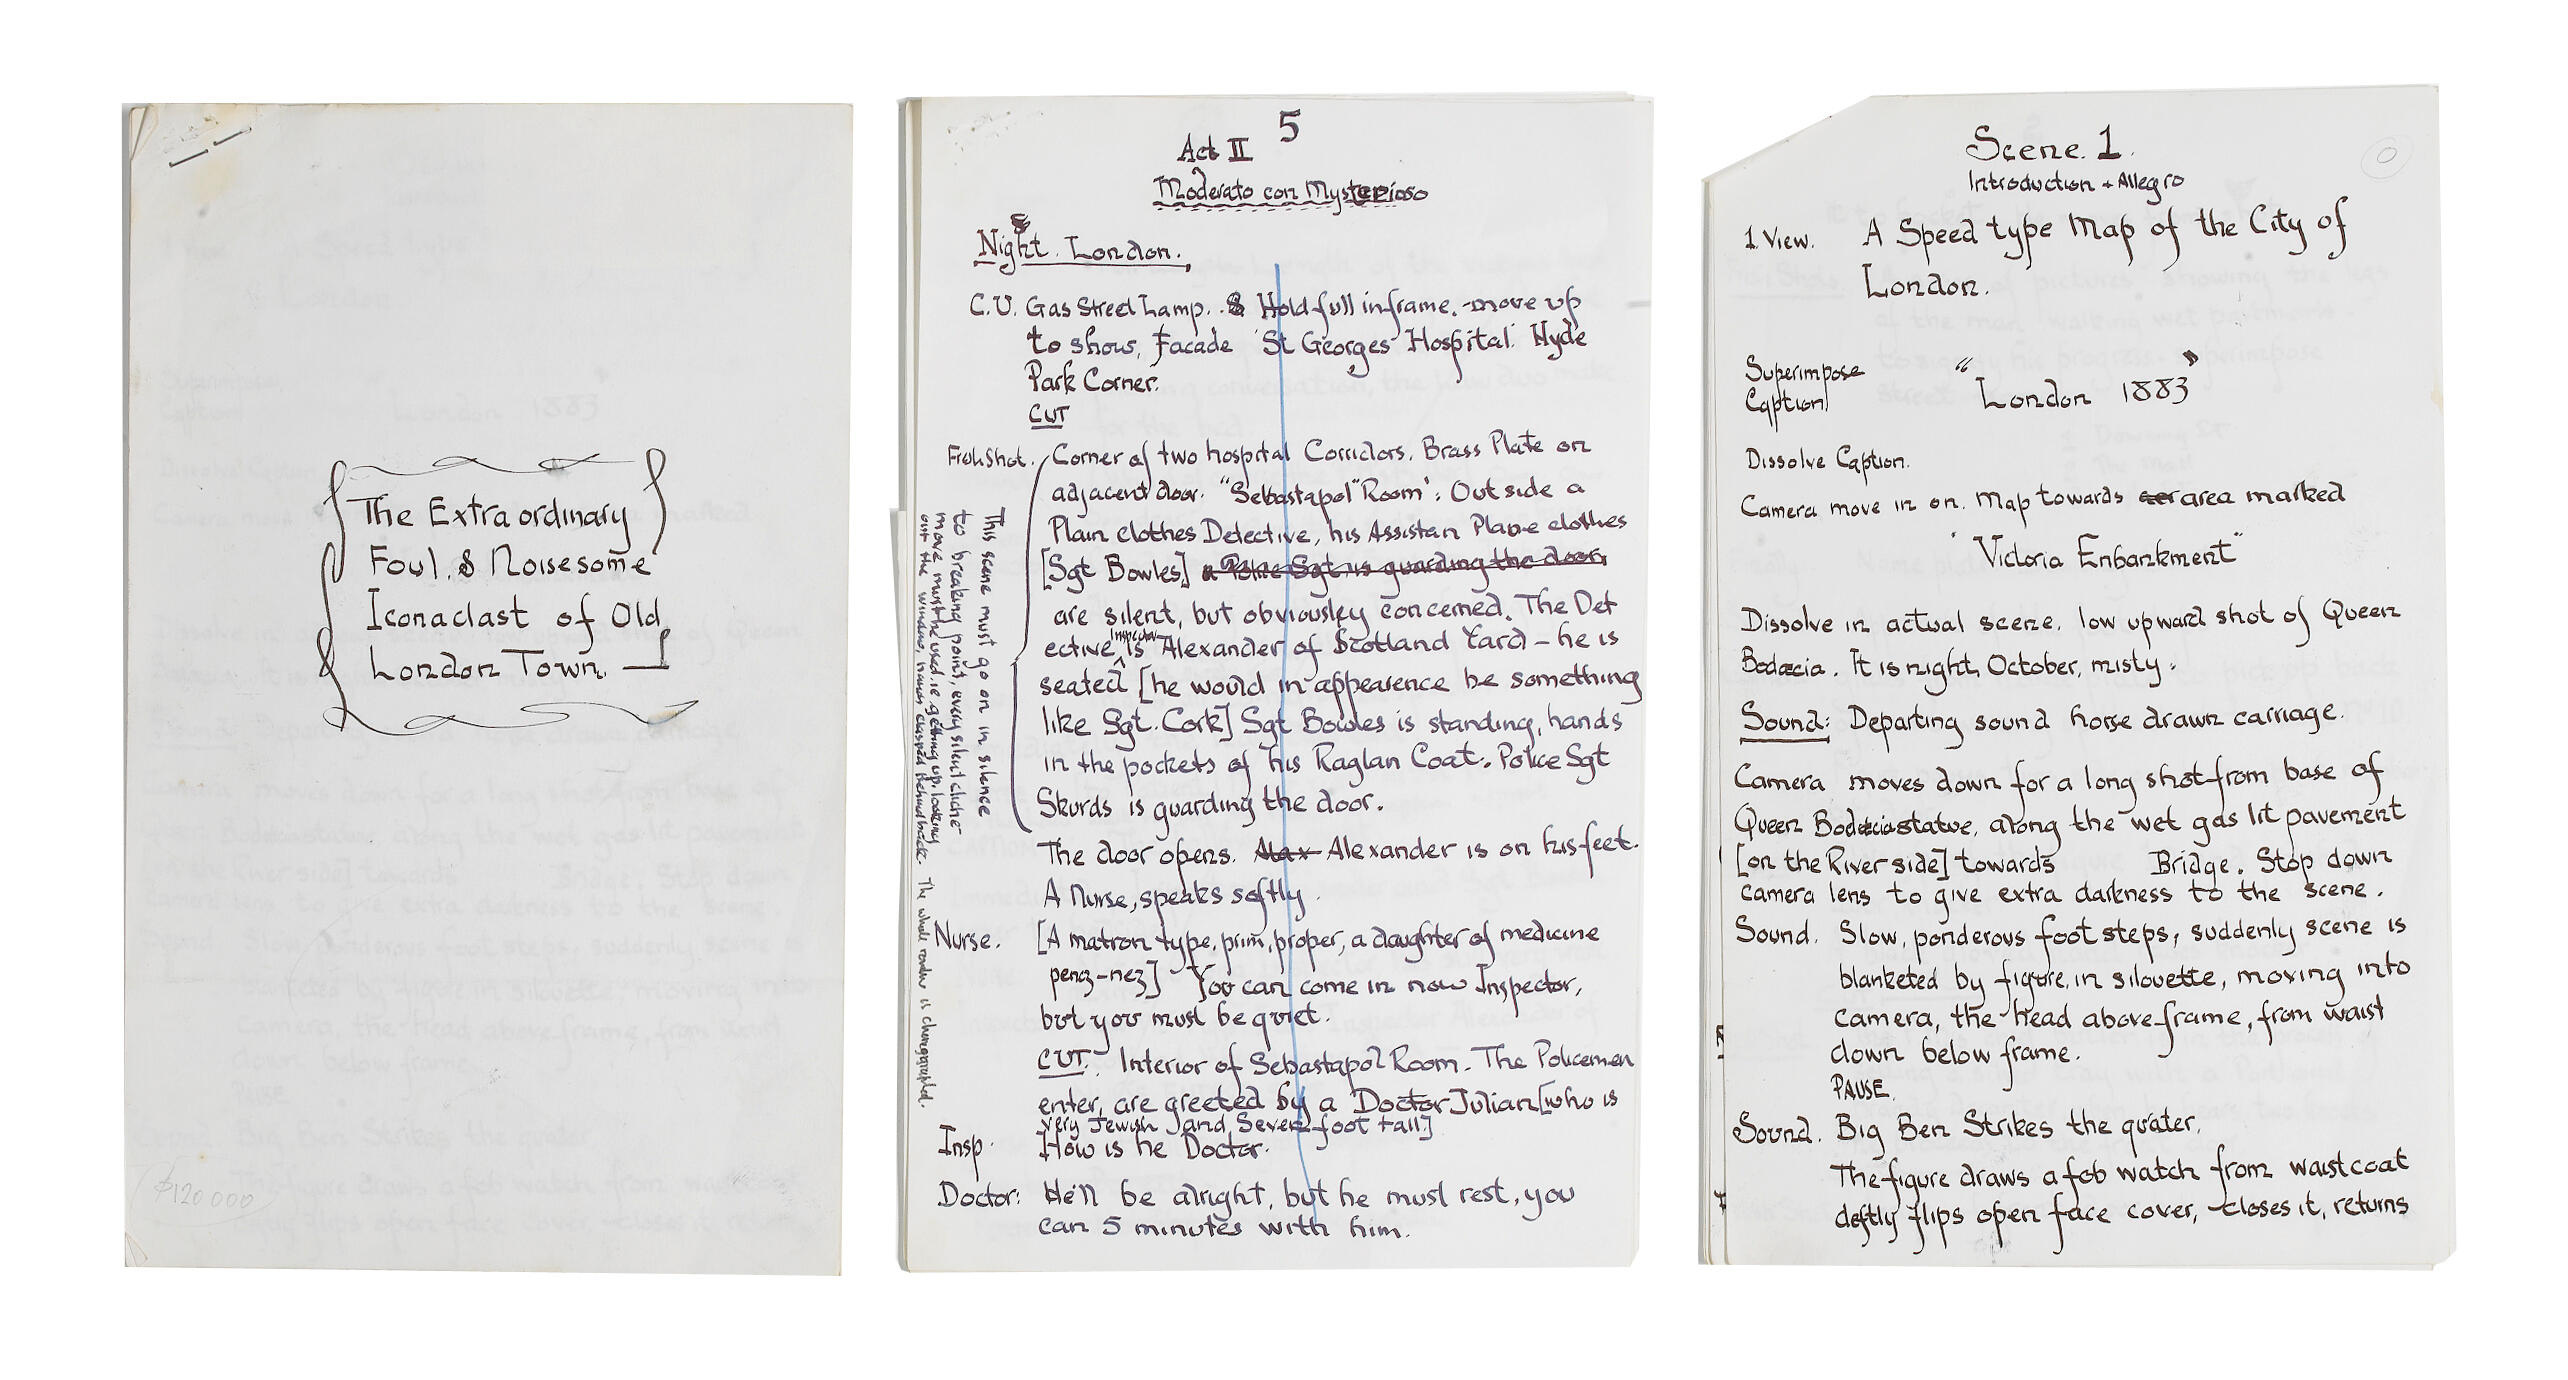 The Extraordinary
Foul, & Noisesome
Iconaclast of Old
London Town.
$120 000
5
Act II
Moderato con Mysterioso
Night. London.
C.U. Gas Street Lamp. & Hold full in frame. move up
to show, Facade St Georges Hospital. Hyde
Park Corner.
CUT
Corner of two hospital Corridors. Brass Plate on
adjacent door. "Sebastapol" Room'. Outside a
Plain clothes Detective, his Assistan Plane clothes
[Sgt Bowles] a Police Sgt is guarding the door.
are silent, but obviousley concerned. The Det
ective is Inspector Alexander of Scotland Yard – he is
seated [he would in appearence be something
like Sgt. Cork] Sgt Bowles is standing, hands
in the pockets of his Raglan Coat. Police Sgt
Skurds is guarding the door.
This scene must go on in silence
to breaking point, every silent cliche
move must be used. ie getting up. looking
out the window, hands clasped behind back. The whole is
The door opens. Alax Alexander is on his feet.
A Nurse, speaks softly.
Nurse. [A matron type, prim, proper, a daughter of medicine
penz-nez] You can come in now Inspector,
but you must be quiet.
CUT. Interior of Sebastapol Room. The Policemen
enter, are greeted by a Doctor Julian [who is
very Jewish and Seven foot tall]
Insp. How is he Doctor.
Doctor: He'll be alright, but he must rest, you
can 5 minutes with him.
Scene. 1.
Introduction + Allegro
1 View. A Speed type Map of the City of
London.
Superimpose
Caption
"London 1883"
Dissolve Caption.
Camera move in on. Map towards aer area marked
"Victoria Enbankment"
Dissolve in actual scene, low upward shot of Queen
Bodacia. It is night, October, misty.
Sound: Departing sound horse drawn carriage.
Camera moves down for a long shot from base of
Queen Bodacia statue, along the wet gas lit pavement
[on the River side] towards Bridge. Stop down
camera lens to give extra darkness to the scene.
Sound. Slow, ponderous foot steps, suddenly scene is
blanketed by figure, in silouette, moving into
camera, the head above frame, from waist
down below frame.
PAUSE.
Sound. Big Ben Strikes the quater.
The figure draws a fob watch from waistcoat
deftly flips open face cover, closes it, returns